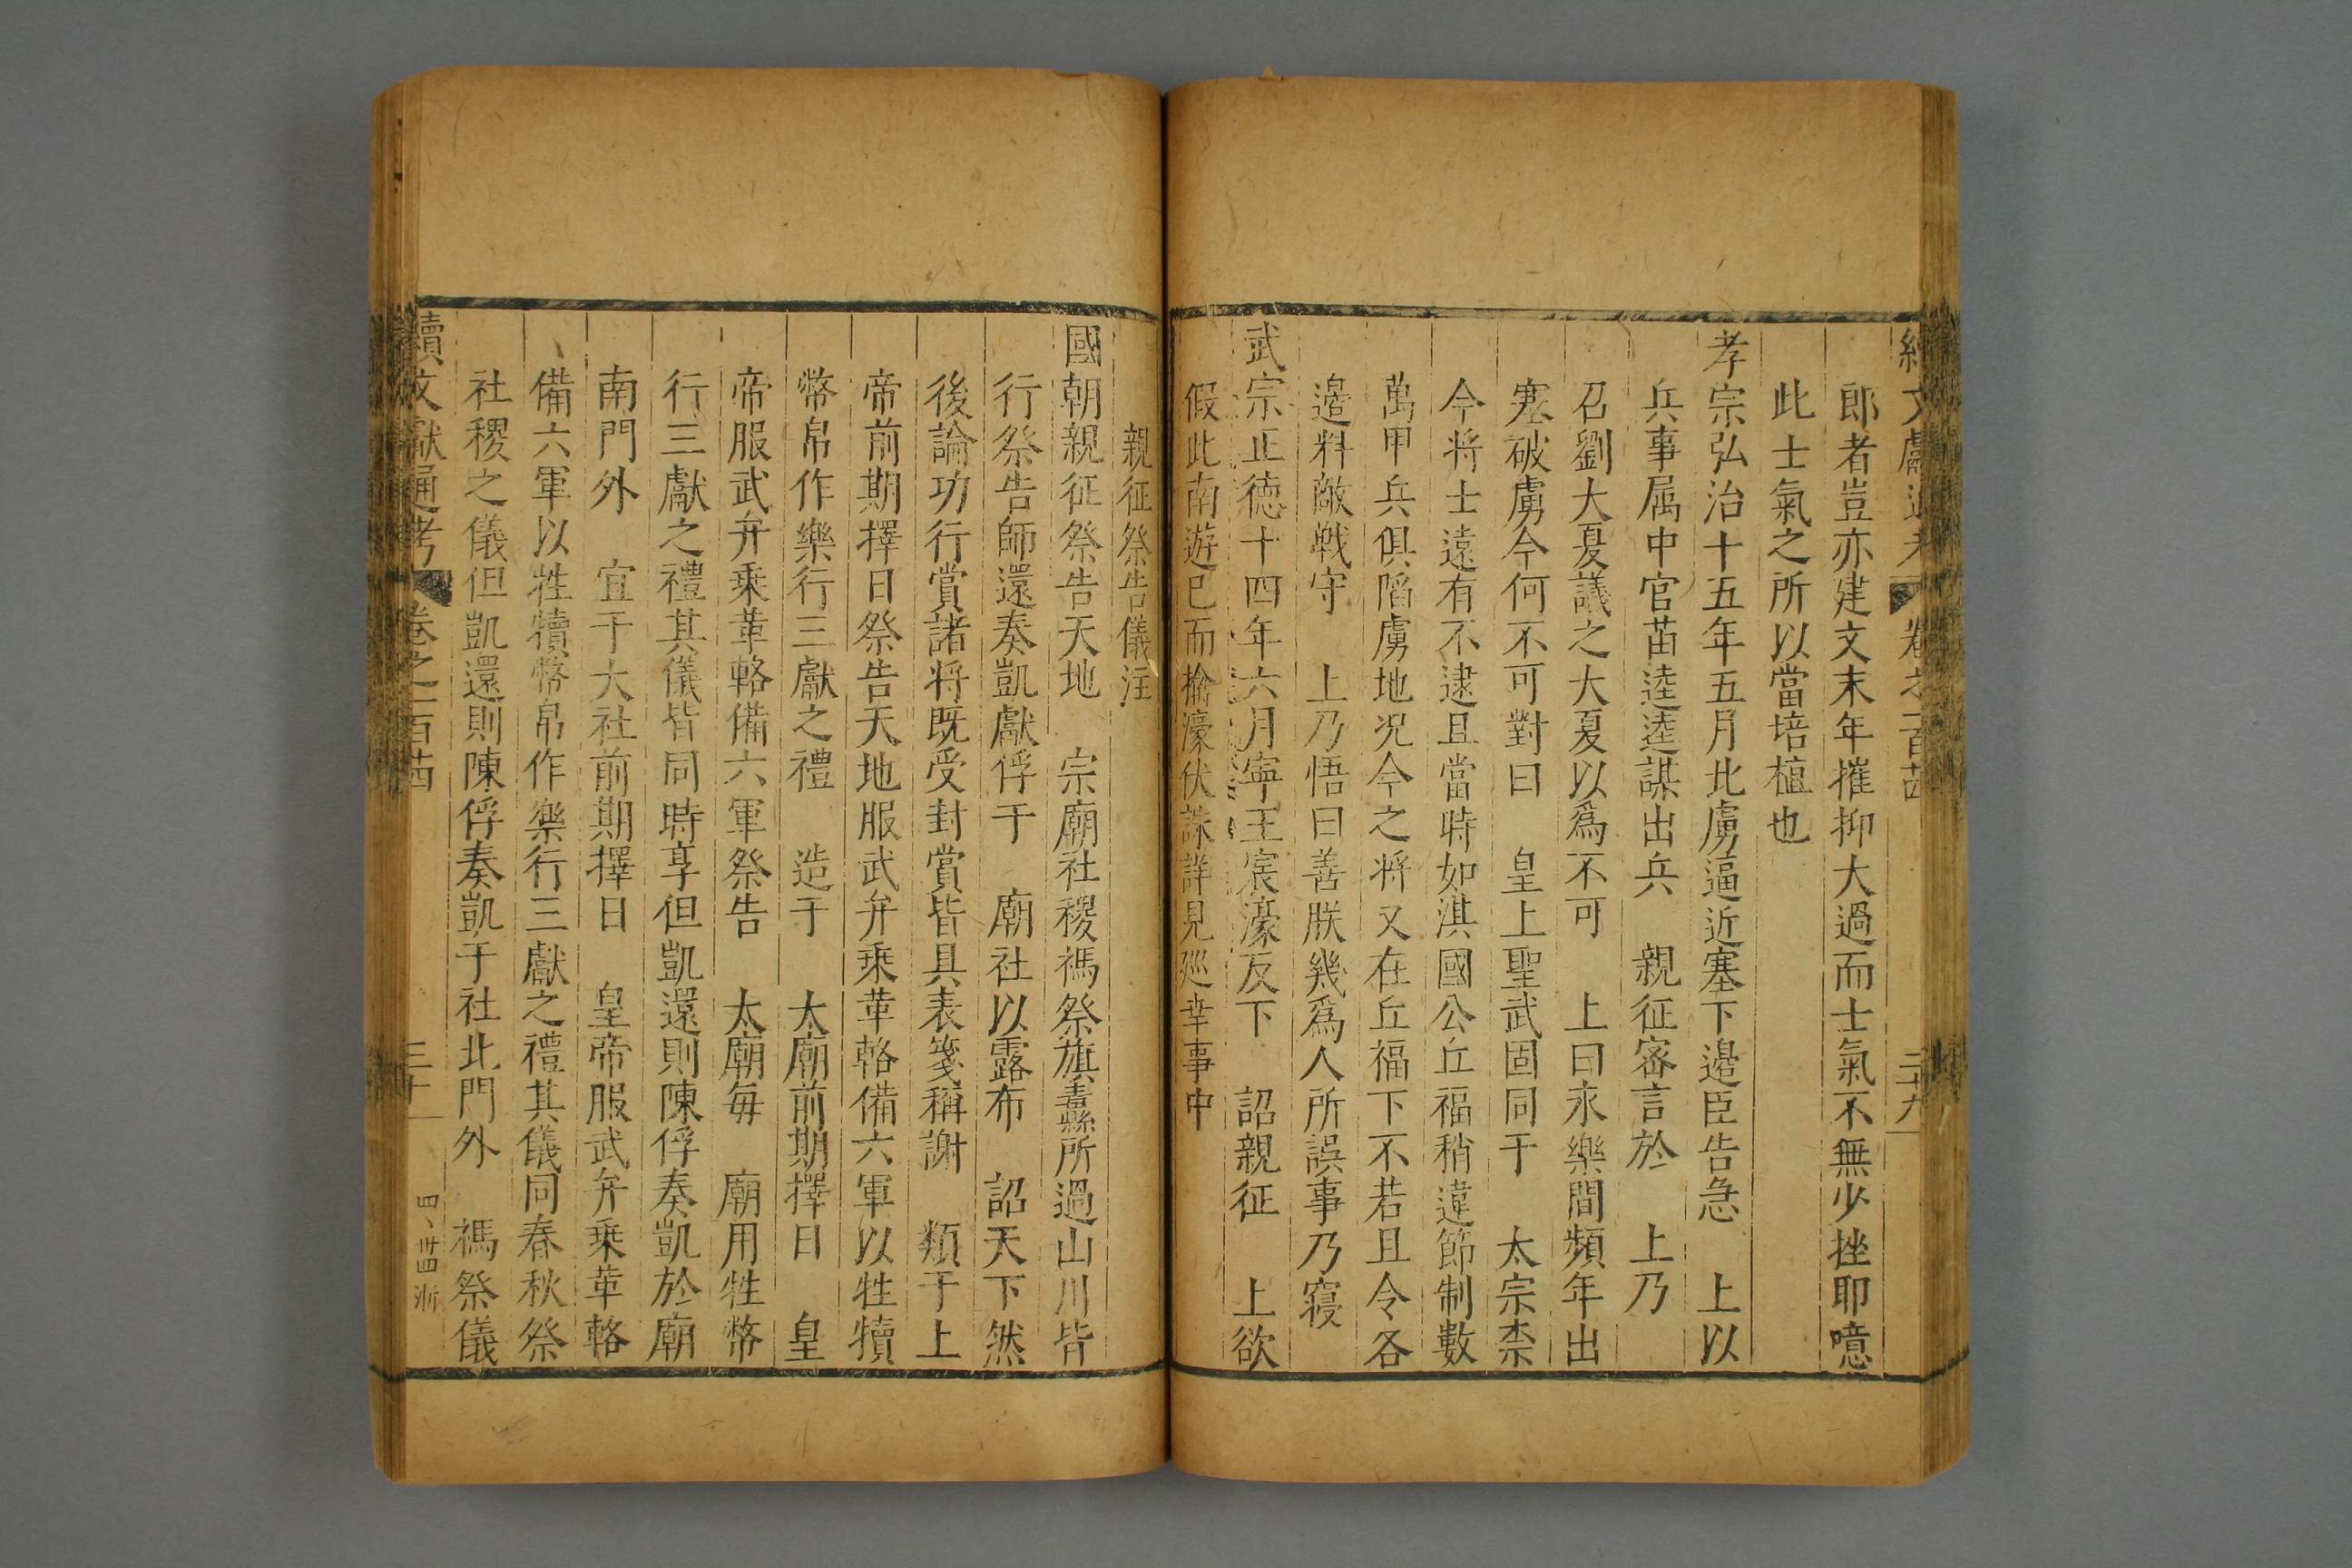 續文獻通考 卷之一百十四 二十九
郎者豈亦建文末年摧抑大過而士氣不無少挫耶噫
此士氣之所以當培植也
孝宗弘治十五年五月北虜逼近塞下邉臣告急 上以
兵事屬中官苗逵逵謀出兵 親征密言於 上乃
召劉大夏議之大夏以爲不可 上曰永樂間頻年出
塞破虜今何不可對曰 皇上聖武固同于 太宗柰
今将士遠有不逮且當時如淇國公丘福稍違節制數
萬甲兵俱䧟虜地况今之将又在丘福下不若且令各
邉料敵戰守 上乃悟曰善朕幾爲人所誤事乃寢
武宗正德十四年六月寧王宸濠反下 詔親征 上欲
假此南遊已而擒濠伏誅詳見廵幸事中
親征祭告儀注
國朝親征祭告天地 宗廟社稷禡祭旗纛所過山川皆
行祭告師還奏凱獻俘于 廟社以露布 詔天下然
後論功行賞諸将既受封賞皆具表箋稱謝 類于上
帝前期擇日祭告天地服武弁乗革輅備六軍以牲犢
幣帛作樂行三獻之禮 造于 太廟前期擇日 皇
帝服武弁乗革輅備六軍祭告 太廟毎 廟用牲幣
行三獻之禮其儀皆同時享但凱還則陳俘奏凱於廟
南門外 宜于大社前期擇日 皇帝服武弁乗革輅
備六軍以牲犢幣帛作樂行三獻之禮其儀同春秋祭
社稷之儀但凱還則陳俘奏凱于社北門外 禡祭儀
續文獻通考 卷之一百十四 三十 四、卅四浙